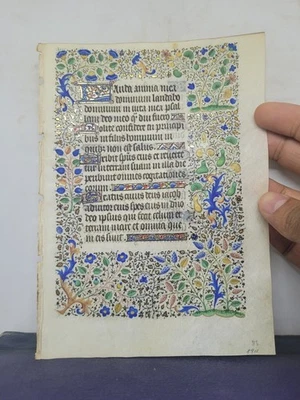 Lauda anima mea
dominum laudabo
dominum in vita mea psal
lam deo meo qͣ diu fuero
Nolite confidere in principi
bus in filiis hominum in
quibz non est salus
Exibit sp̄s eius et revertet
in terram suam in illa die
peribunt omnes cogitationes
eorum
Beatus cuius deus iacob
adiutor eius spes eius in dn̄o
deo ipsius qui fecit celum et
terram mare et omnia que
in eis sunt